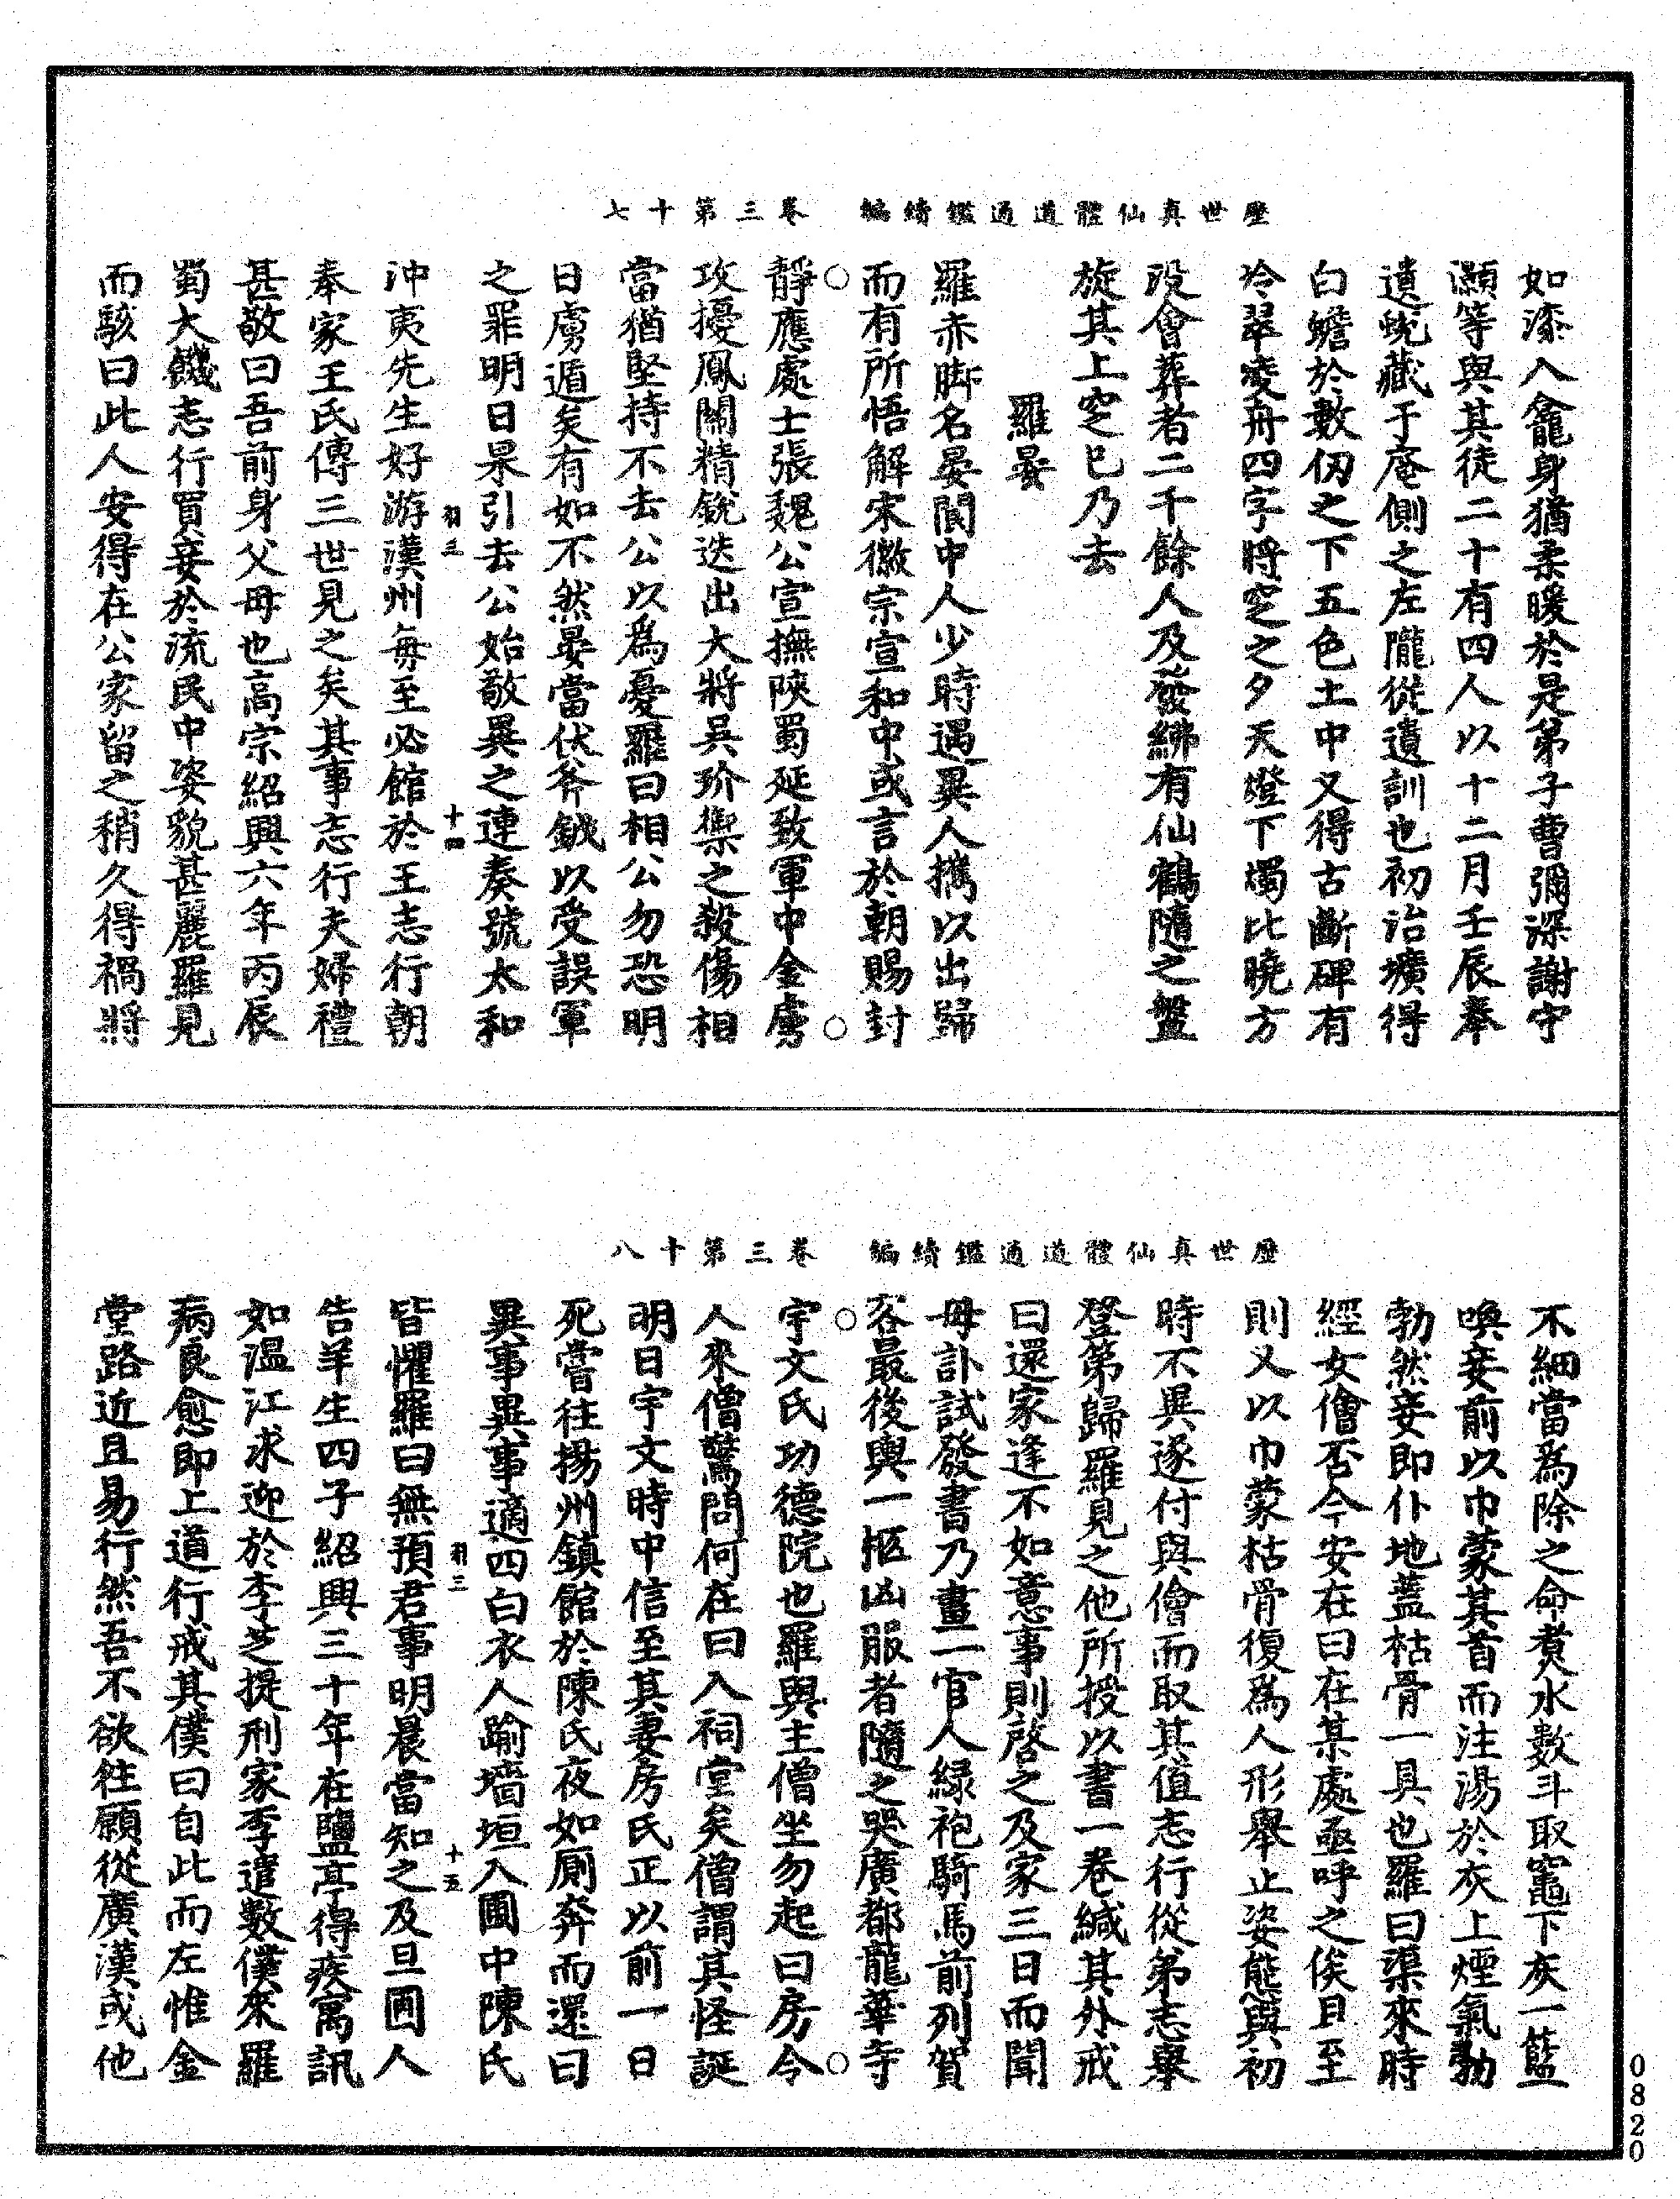 歷世真仙體道通鑑續編　卷三第十七
如漆入龕身猶柔暖於是弟子曹彌深謝守
灝等與其徒二十有四人以十二月壬辰奉
遺蛻藏于庵側之左隴從遺訓也初治壙得
白蟾於數仞之下五色土中又得古斷碑有
冷翠凌舟四字將窆之夕天燈下燭比曉方
沒會葬者二千餘人及發紼有仙鶴隨之盤
旋其上窆已乃去
羅晏
羅赤脚名晏閬中人少時遇異人攜以出歸
而有所悟解宋徽宗宣和中或言於朝賜封
靜應處士張魏公宣撫陝蜀延致軍中金虜
攻擾鳳關精銳迭出大將吳玠禦之殺傷相
當猶堅持不去公以為憂羅曰相公勿恐明
日虜遁矣有如不然晏當伏斧鉞以受誤軍
之罪明日果引去公始敬異之連奏號太和
羽三　十四
沖夷先生好游漢州每至必館於王志行朝
奉家王氏傳三世見之矣其事志行夫婦禮
甚敬曰吾前身父母也高宗紹興六年丙辰
蜀大饑志行買妾於流民中姿貌甚麗羅見
而駭曰此人安得在公家留之稍久得禍將
歷世真仙體道通鑑續編　卷三第十八
不細當為除之命煮水數斗取竈下灰一籃
喚妾前以巾蒙其首而注湯於灰上煙氣勃
勃然妾即仆地蓋枯骨一具也羅曰渠來時
經女儈否今安在曰在某處亟呼之俟且至
則又以巾蒙枯骨復為人形舉止姿態與初
時不異遂付與儈而取其值志行從弟志舉
登第歸羅見之他所授以書一卷緘其外戒
曰還家逢不如意事則啓之及家三日而聞
母訃試發書乃畫一官人綠袍騎馬前列賀
客最後輿一柩凶服者隨之哭廣都龍華寺
宇文氏功德院也羅與主僧坐勿起曰房令
人來僧驚問何在曰入祠堂矣僧謂其怪誕
明日宇文時中信至其妻房氏正以前一日
死嘗往揚州鎮館於陳氏夜如厠奔而還曰
異事異事適四白衣人踰墻垣入圃中陳氏
羽三　十五
皆懼羅曰無預君事明晨當知之及旦圃人
告羊生四子紹興三十年在鹽亭得疾寓訊
如溫江求迎於李芝提刑家李遣數僕來羅
病良愈即上道行戒其僕曰自此而左惟金
堂路近且易行然吾不欲往願從廣漢或他
0820